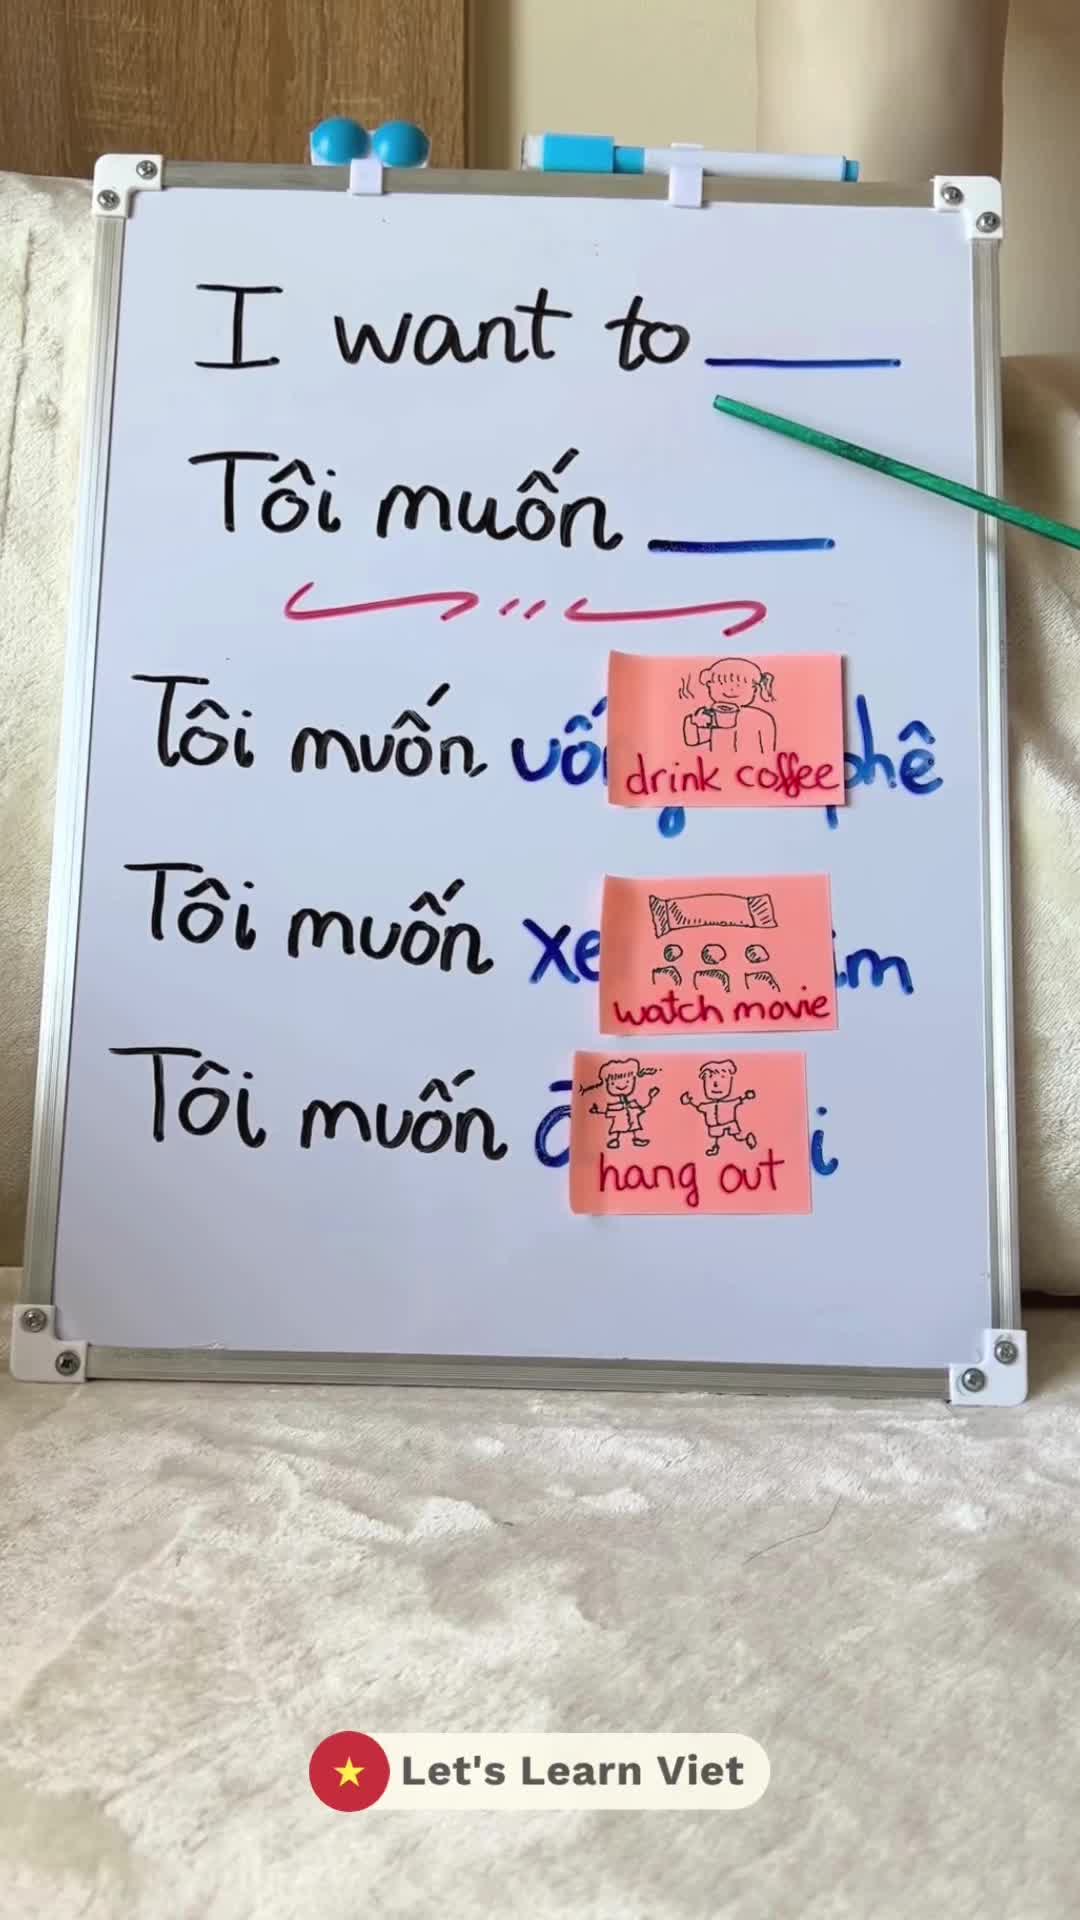 I want to
Tôi muốn
Tôi muốn
drink coffee
Tôi muốn
watch movie
Tôi muốn
hang out
Let's Learn Viet